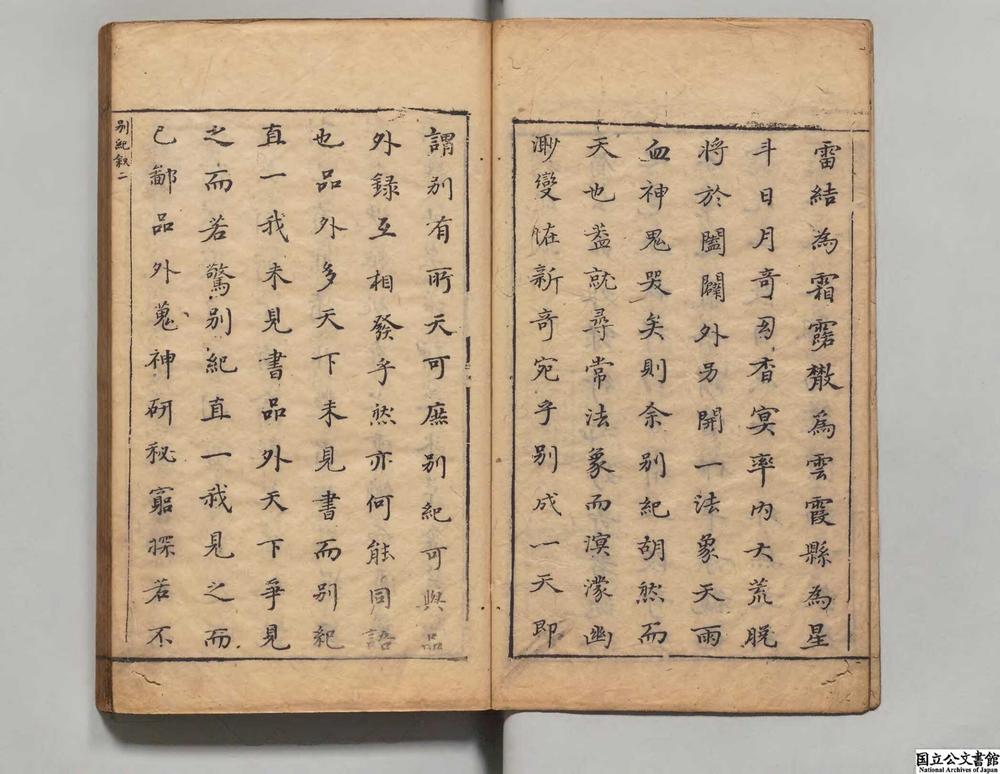 雷結為霜露散為雲霞縣為星
斗日月奇幻杳冥率內大荒脫
將於闔闢外另開一法象天雨
血神鬼哭矣則余別紀胡然而
天也葢就尋常法象而溟濛幽
渺變恠新奇宛乎別成一天即
謂別有所天可庶別紀可與品
外録互相發乎然亦何能同語
也品外多天下未見書而別紀
直一我未見書品外天下爭見
之而若驚別紀直一我見之而
已鄙品外蒐神研秘窮探若不
別紀敘二
国立公文書館
National Archives of Japan